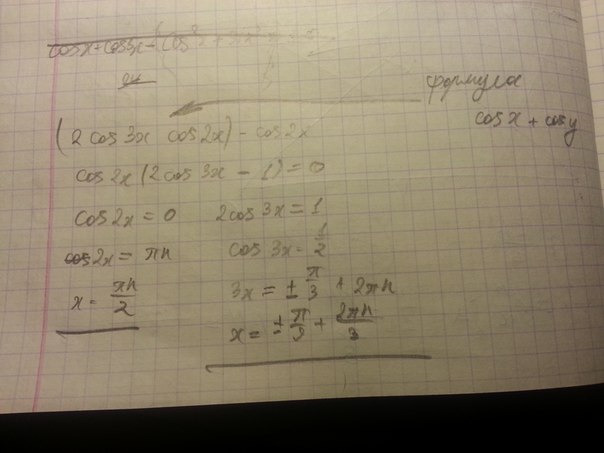 cos x + cos 5x -
формула
cos x + cos y
(2 cos 3x cos 2x) - cos 2x
cos 2x (2 cos 3x - 1) = 0
cos 2x = 0 2cos 3x = 1
2x = πn cos 3x = 1/2
x = πn/2 3x = ± π/3 + 2πn
x = ± π/9 + 2πn/3